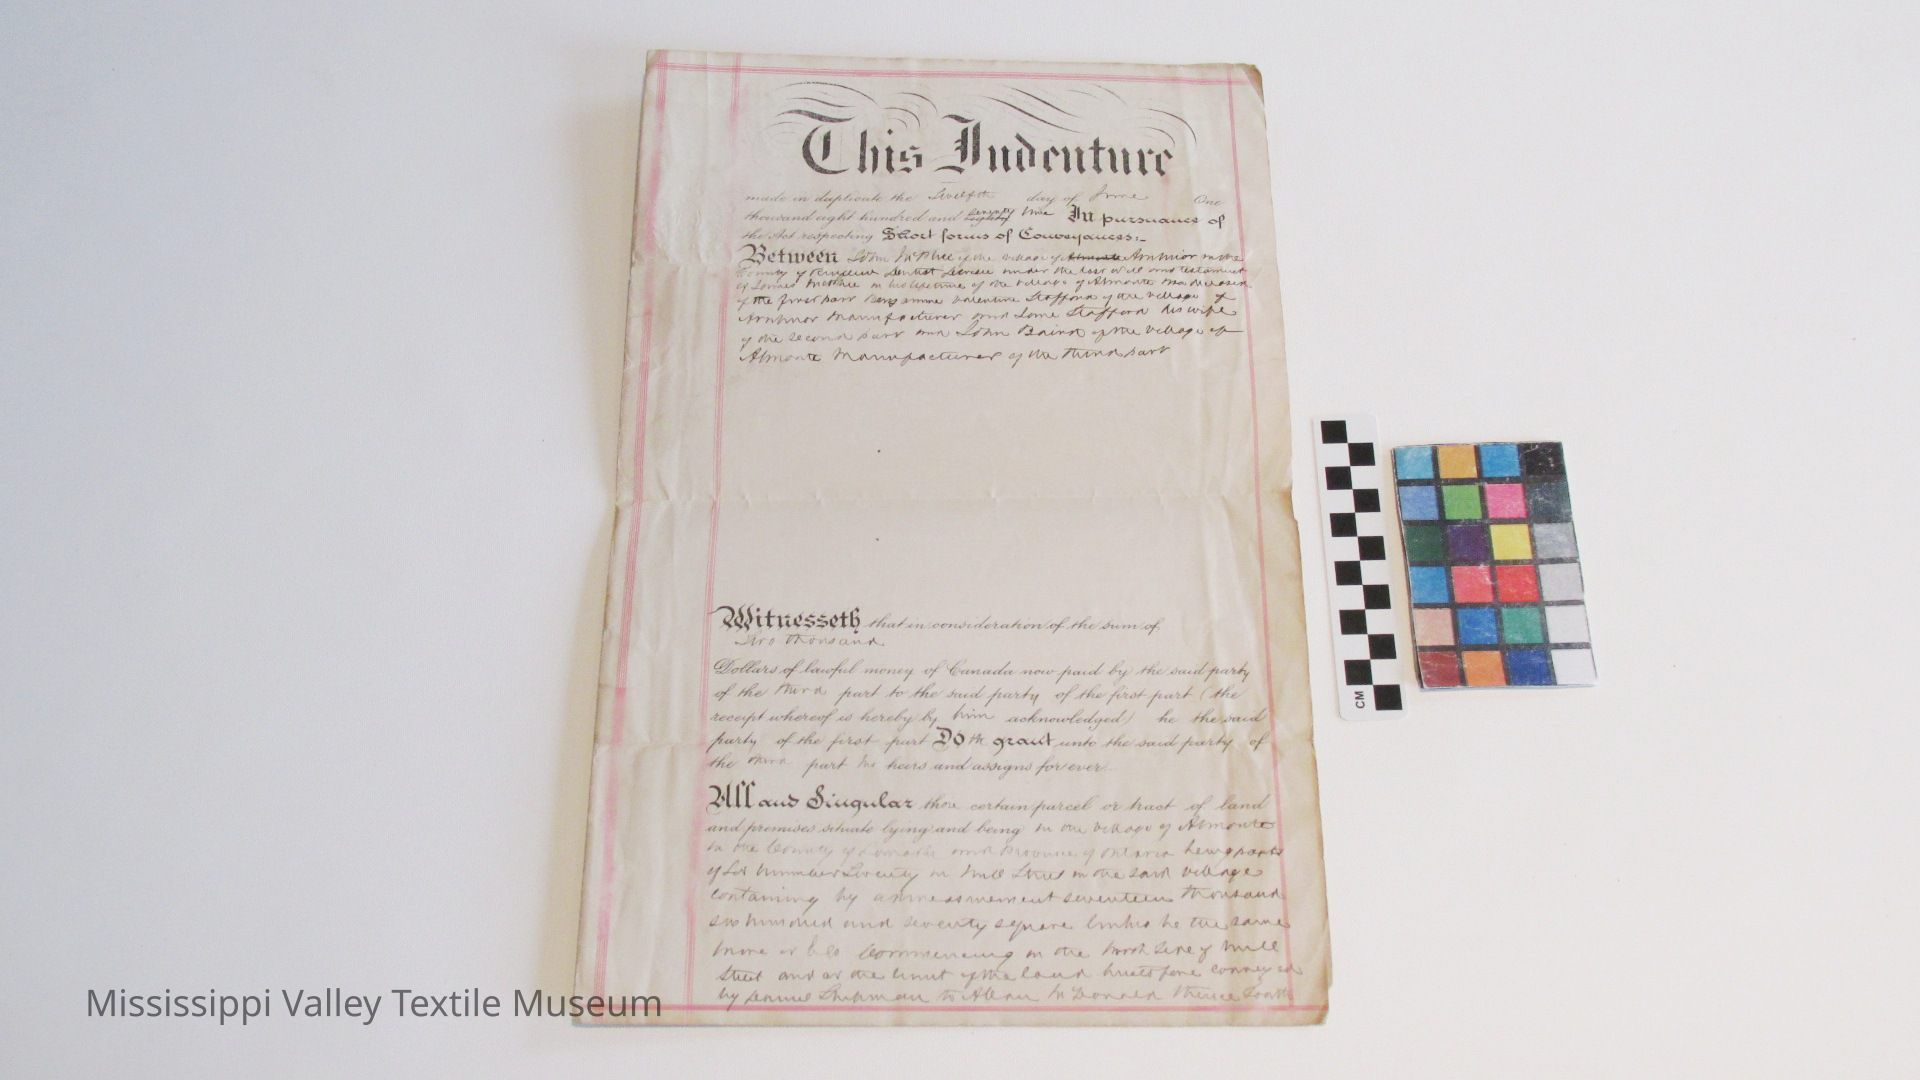 This Indenture
made in duplicate the Twelfth day of June One
thousand eight hundred and seventy nine In pursuance of
the Act respecting Short forms of Conveyances:-
Between John McPhee of the village of Almonte Arnprior in the
County of Renfrew Dentist Devisee under the last Will and testament
of James McPhee in his lifetime of the village of Almonte deceased
of the first part Benjamine Valentine Stafford of the village of
Arnprior Manufacturer and Jane Stafford his wife
of the second part and John Baird of the village of
Almonte Manufacturer of the third part
Witnesseth that in consideration of the sum of
Two thousand
Dollars of lawful money of Canada now paid by the said party
of the third part to the said party of the first part (the
receipt whereof is hereby by him acknowledged) he the said
party of the first part Doth grant unto the said party of
the third part his heirs and assigns for ever.
All and Singular those certain parcel or tract of land
and premises situate lying and being in the village of Almonte
in the County of Lanark and Province of Ontario being parts
of Lot number Seventy on Mill Street in the said village
containing by admeasurement seventeen thousand
six hundred and seventy square links be the same
more or less Commencing on the North side of Mill
Street and at the limit of the land heretofore conveyed
by Daniel Shipman to Allan McDonald thence South
CM
Mississippi Valley Textile Museum